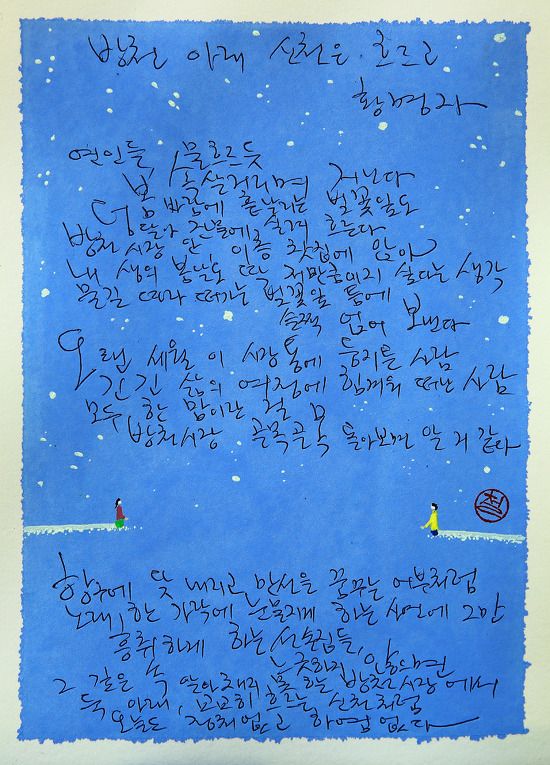 방천 아래 신천은 흐르고
황명자
연인들 물흐르듯
봄 속살거리며 지난다
덩달아 바람에 흩날리는 벚꽃잎도
강물에 실려 흐른다
방천 시장 안 이층 찻집에 앉아
내 생의 봄날도 딱 저만큼이지 싶다는 생각
물길 따라 떠가는 벚꽃잎 틈에
슬쩍 얹어 보낸다
오랜 세월 이 시장통에 둥지튼 사람
긴긴 삶의 여정에 힘겨워 떠난 사람
모두 한 맘이란 걸
방천시장 골목골목 돌아보면 알 거 같다
항구에 닻 내리고 만선을 꿈꾸는 어부처럼
노래 한 가락에 눈물지게 하는 사연에 그만
흥취하게 하는 선술집들,
느긋하지 않으면
그 깊은 속 알아채지 못하는 방천시장에서
둑 아래, 고고히 흐르는 신천처럼
오늘도 정처없고 하염없다